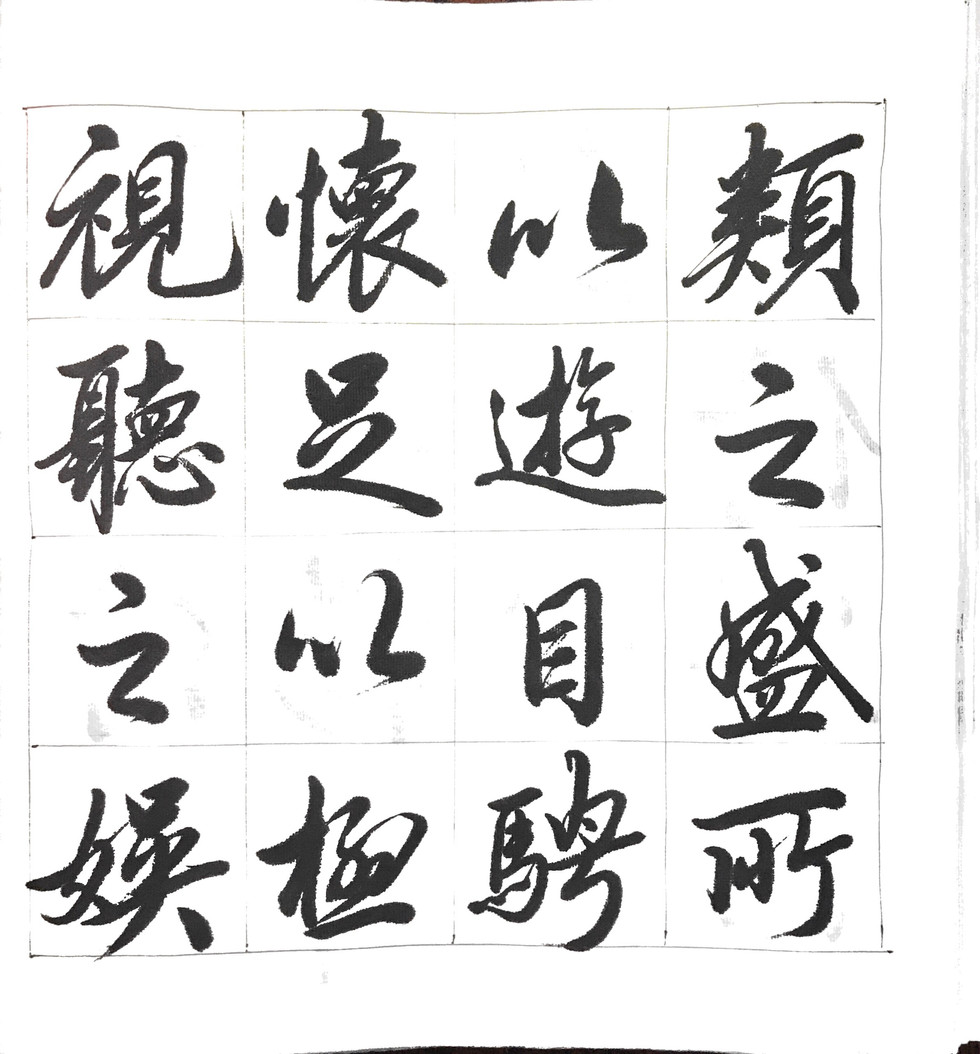 類之盛所
以遊目騁
懷足以極
視聽之娛